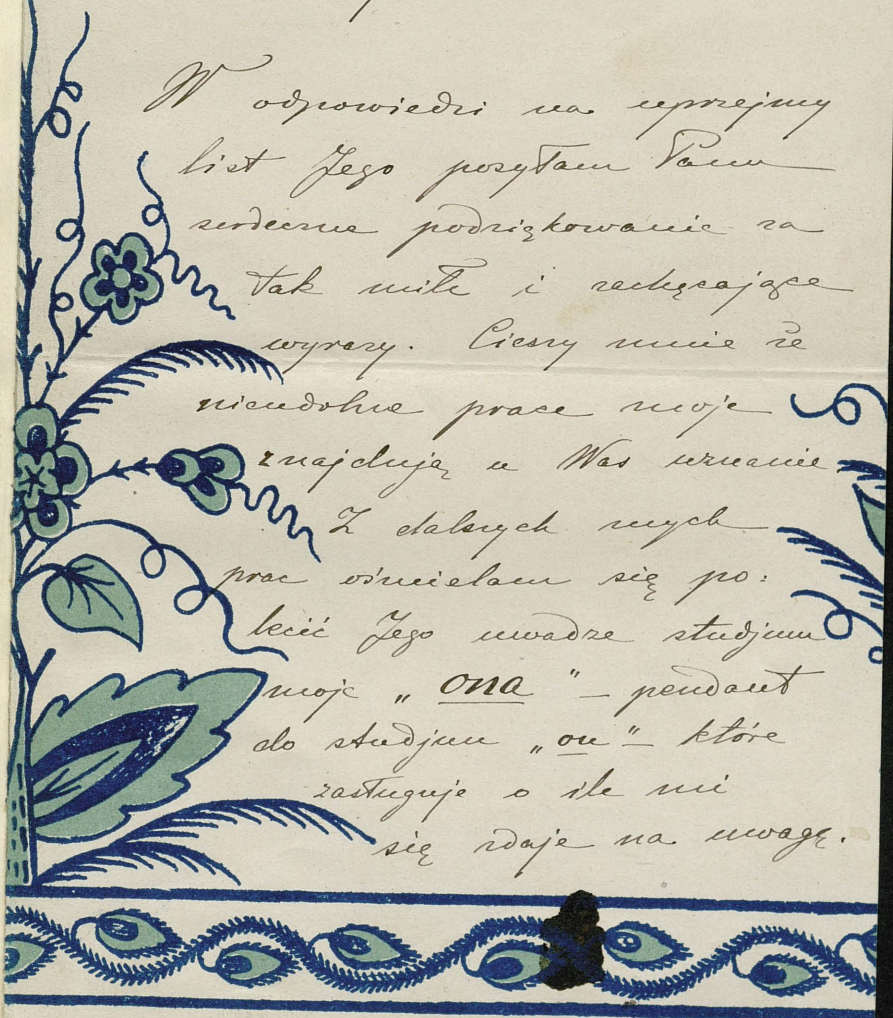 W odpowiedzi na uprzejmy
list Jego posyłam Panu
serdeczne podziękowanie za
tak miłe i zachęcające
wyrazy. Cieszy mnie że
nieudolne prace moje
znajdują u Was uznanie
Z dalszych mych
prac ośmielam się po:
lecić Jego uwadze studjum
moje „ona" – pendant
do studjum „on" – które
zasługuje o ile mi
się zdaje na uwagę.